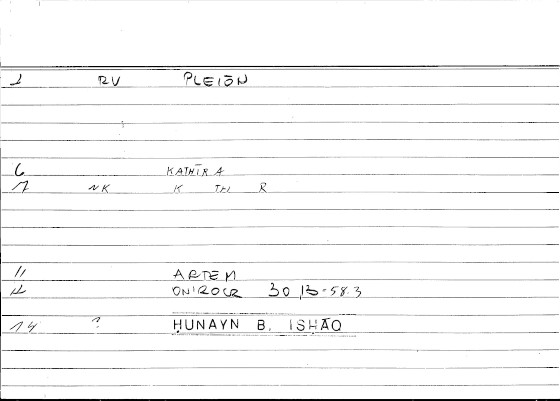 1 RV PLEIŌN
6 KATHĪRA
7 NK K TH R
11 ARTEM
12 ONIROCR 30,13-58.3
14 ? ḤUNAYN B. ISḤĀQ